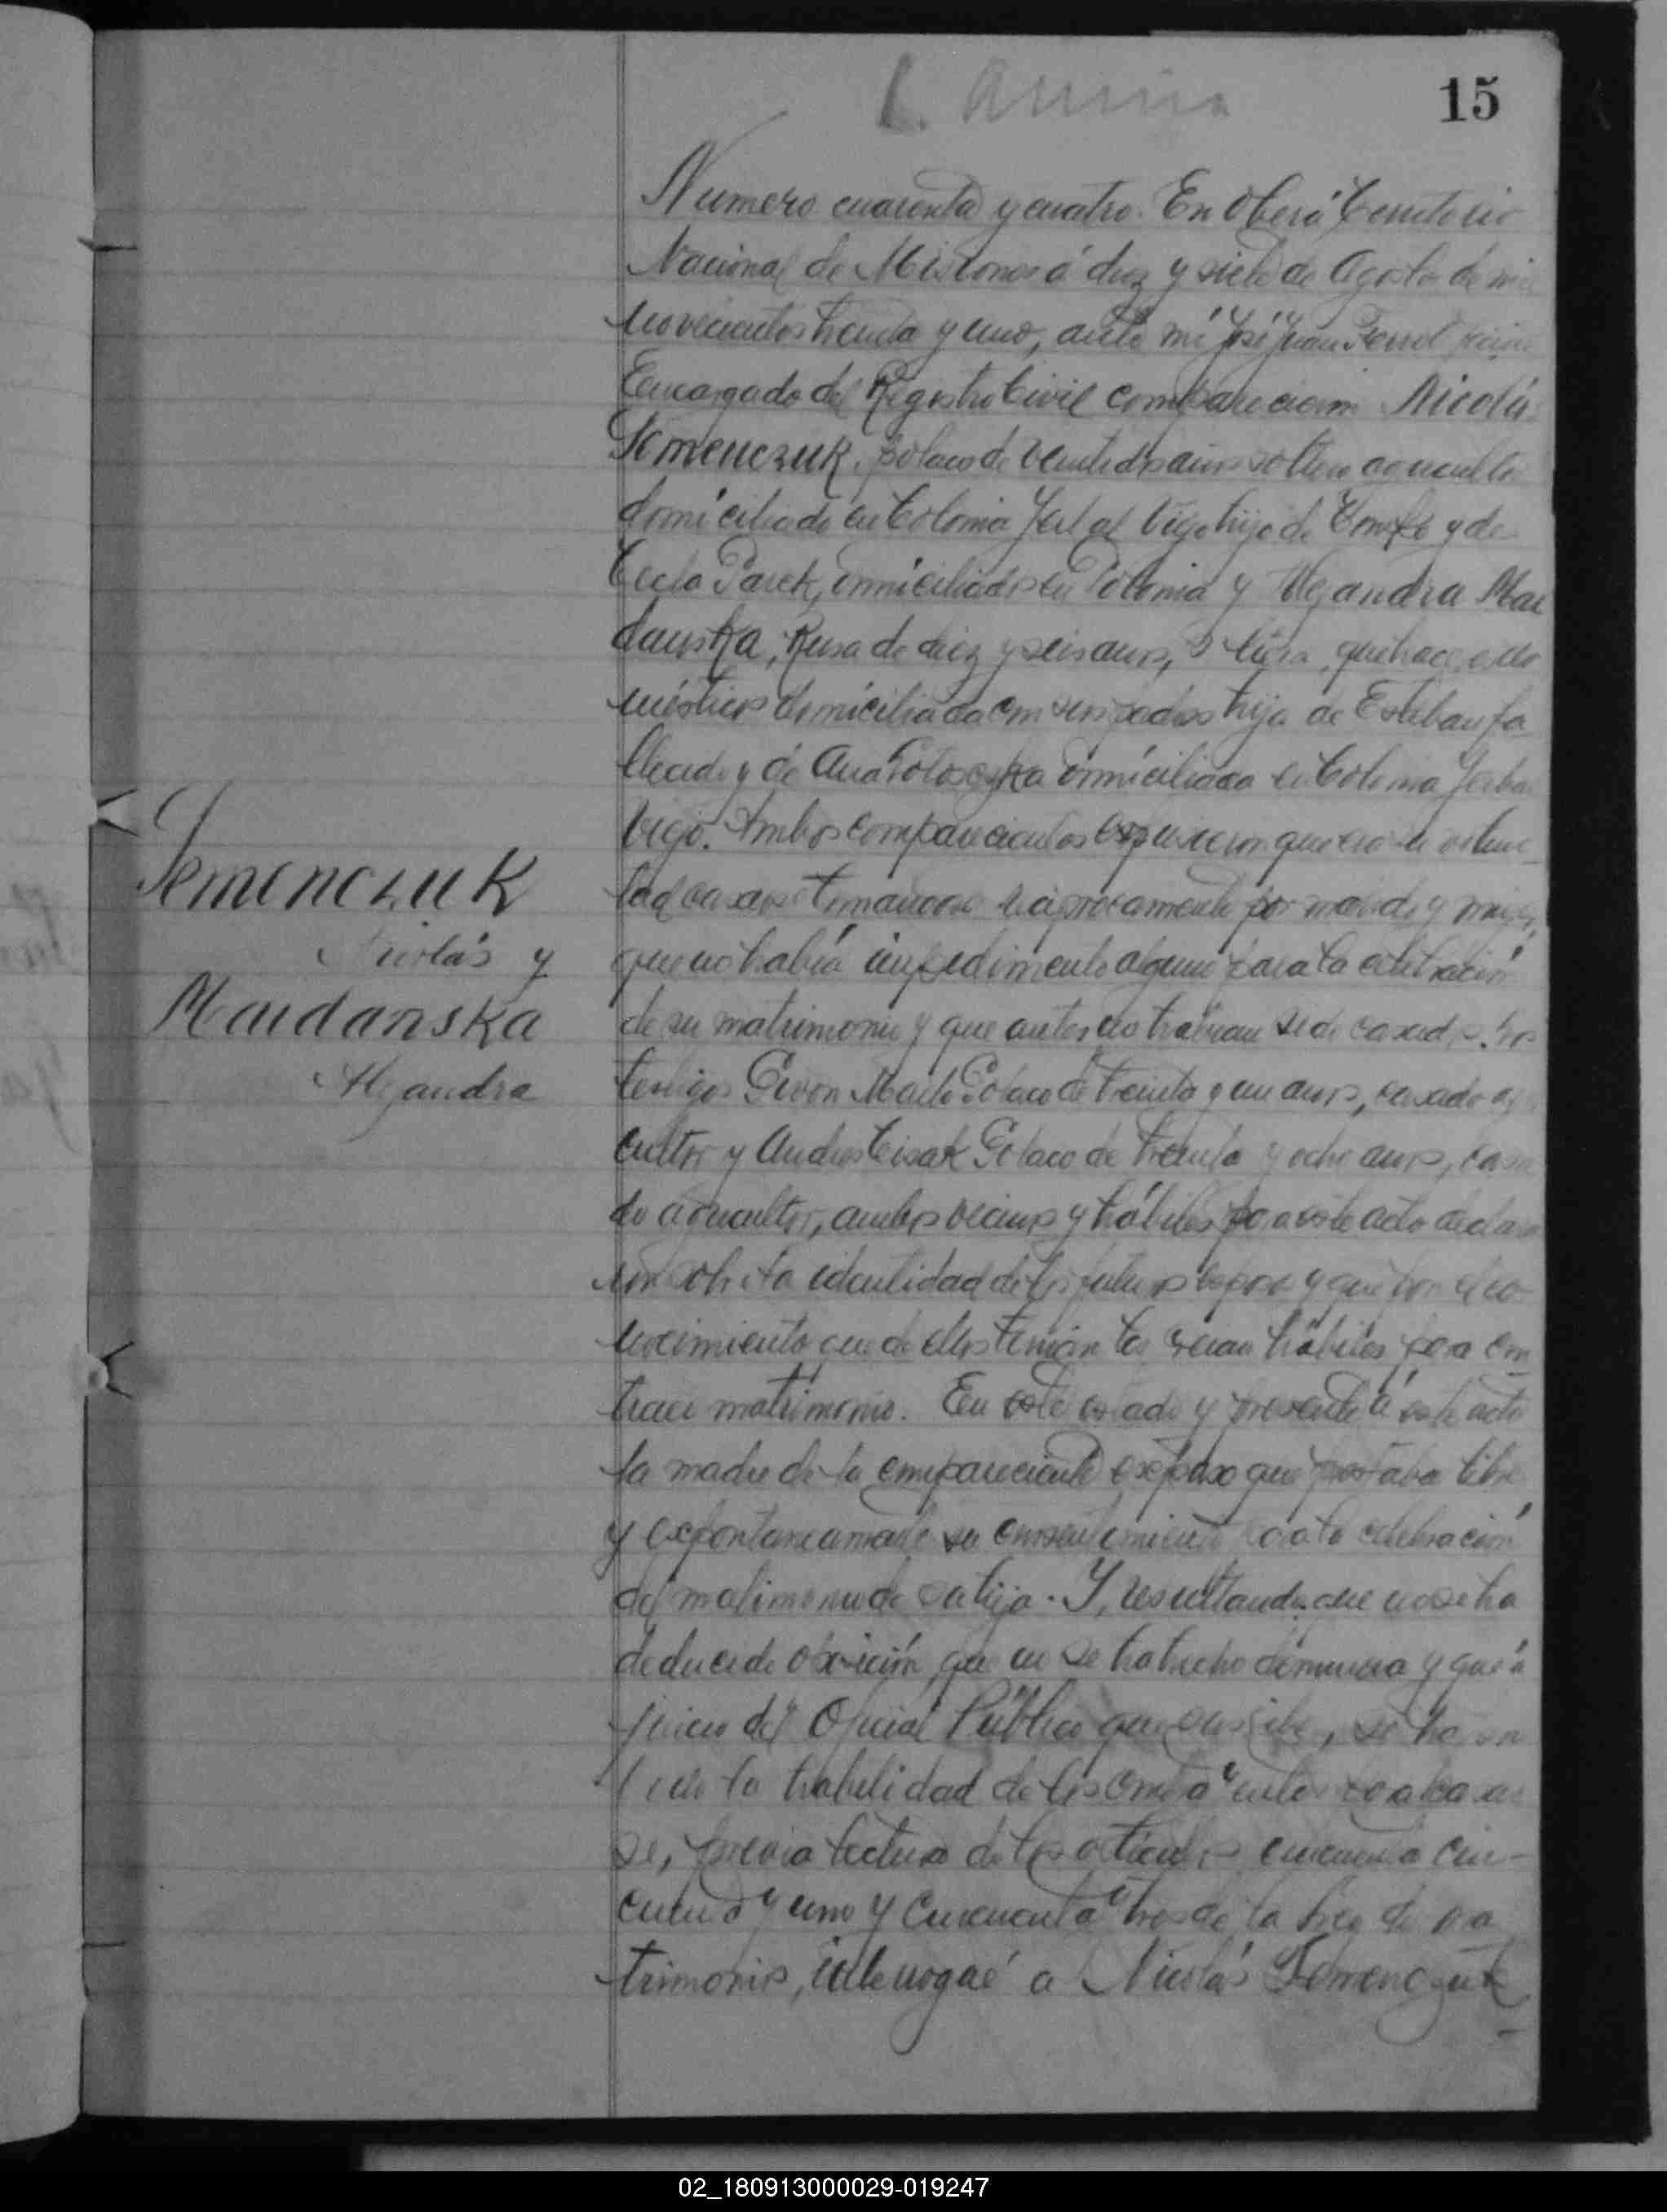 15
Numero cuarenta y cuatro. En Oberá Territorio
Nacional de Misiones á diez y siete de Agosto de mil
novecientos treinta y uno, ante mi José Juan
Encargado del Registro Civil comparecieron Nicolás
Semenczuk, polaco de veintidos años soltero agricultor
domiciliado en Colonia Yerbal Viejo hijo de y de
Tecla domiciliados en Polonia y Alejandra Mai
danska, Rusa de diez y seis años, soltera, quehaceres do
mésticos domiciliada con sus padres hija de Esteban fa
llecido y de Ana domiciliada en Colonia Yerbal
Viejo. Ambos comparecientes expusieron que era su volun
tad casarse tomandose reciprocamente por marido y mujer,
que no había impedimento alguno para la celebración
de su matrimonio y que antes no habian sido casados. Los
testigos Polaco de treinta y un años, casado agri
cultor y Andres Polaco de treinta y ocho años, casa
do agricultor, ambos vecinos y hábiles para este acto declara
ron sobre la identidad de los futuros esposos y que por el co
nocimiento que de ellos tenian los creian hábiles para con
traer matrimonio. En este estado y presente á este acto
la madre de la compareciente expuso que prestaba libre
y expontaneamente su consentimiento para la celebración
del matrimonio de su hija. Y, resultando que no se ha
deducido oposición, que no se ha hecho denuncia y que á
juicio del Oficial Público que suscribe, se ha
la habilidad de los contrayentes para casar
se, previa lectura de los articulos cincuenta cin-
cuenta y uno y cincuenta y tres de la Ley de ma
trimonio, interrogué a Nicolás Semenczuk
Semenczuk
Nicolás y
Maidanska
Alejandra
02_180913000029-019247